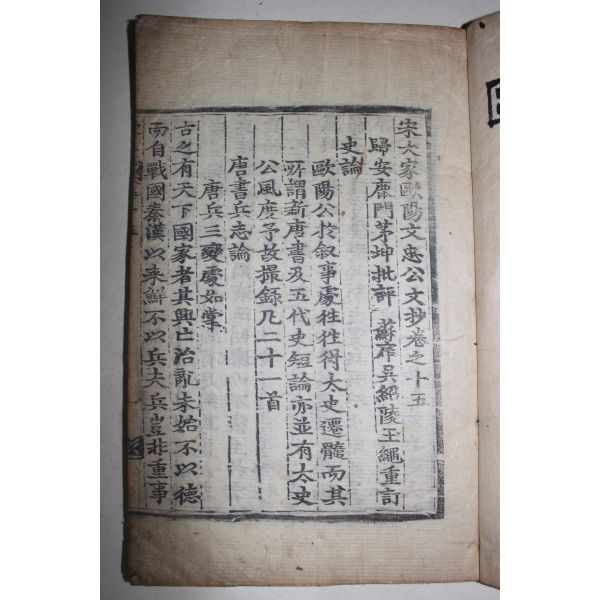 宋大家歐陽文忠公文抄卷之十五
歸安鹿門茅坤批評 蘇庠吳紹陵王繩重訂
史論
歐陽公於叙事處徃徃得太史遷髓而其
所謂新唐書及五代史短論亦並有太史
公風度予故撮錄凡二十一首
唐書兵志論
唐兵三變處如掌
古之有天下國家者其興亡治亂未始不以德
而自戰國秦漢以来鮮不以兵夫兵豈非重事